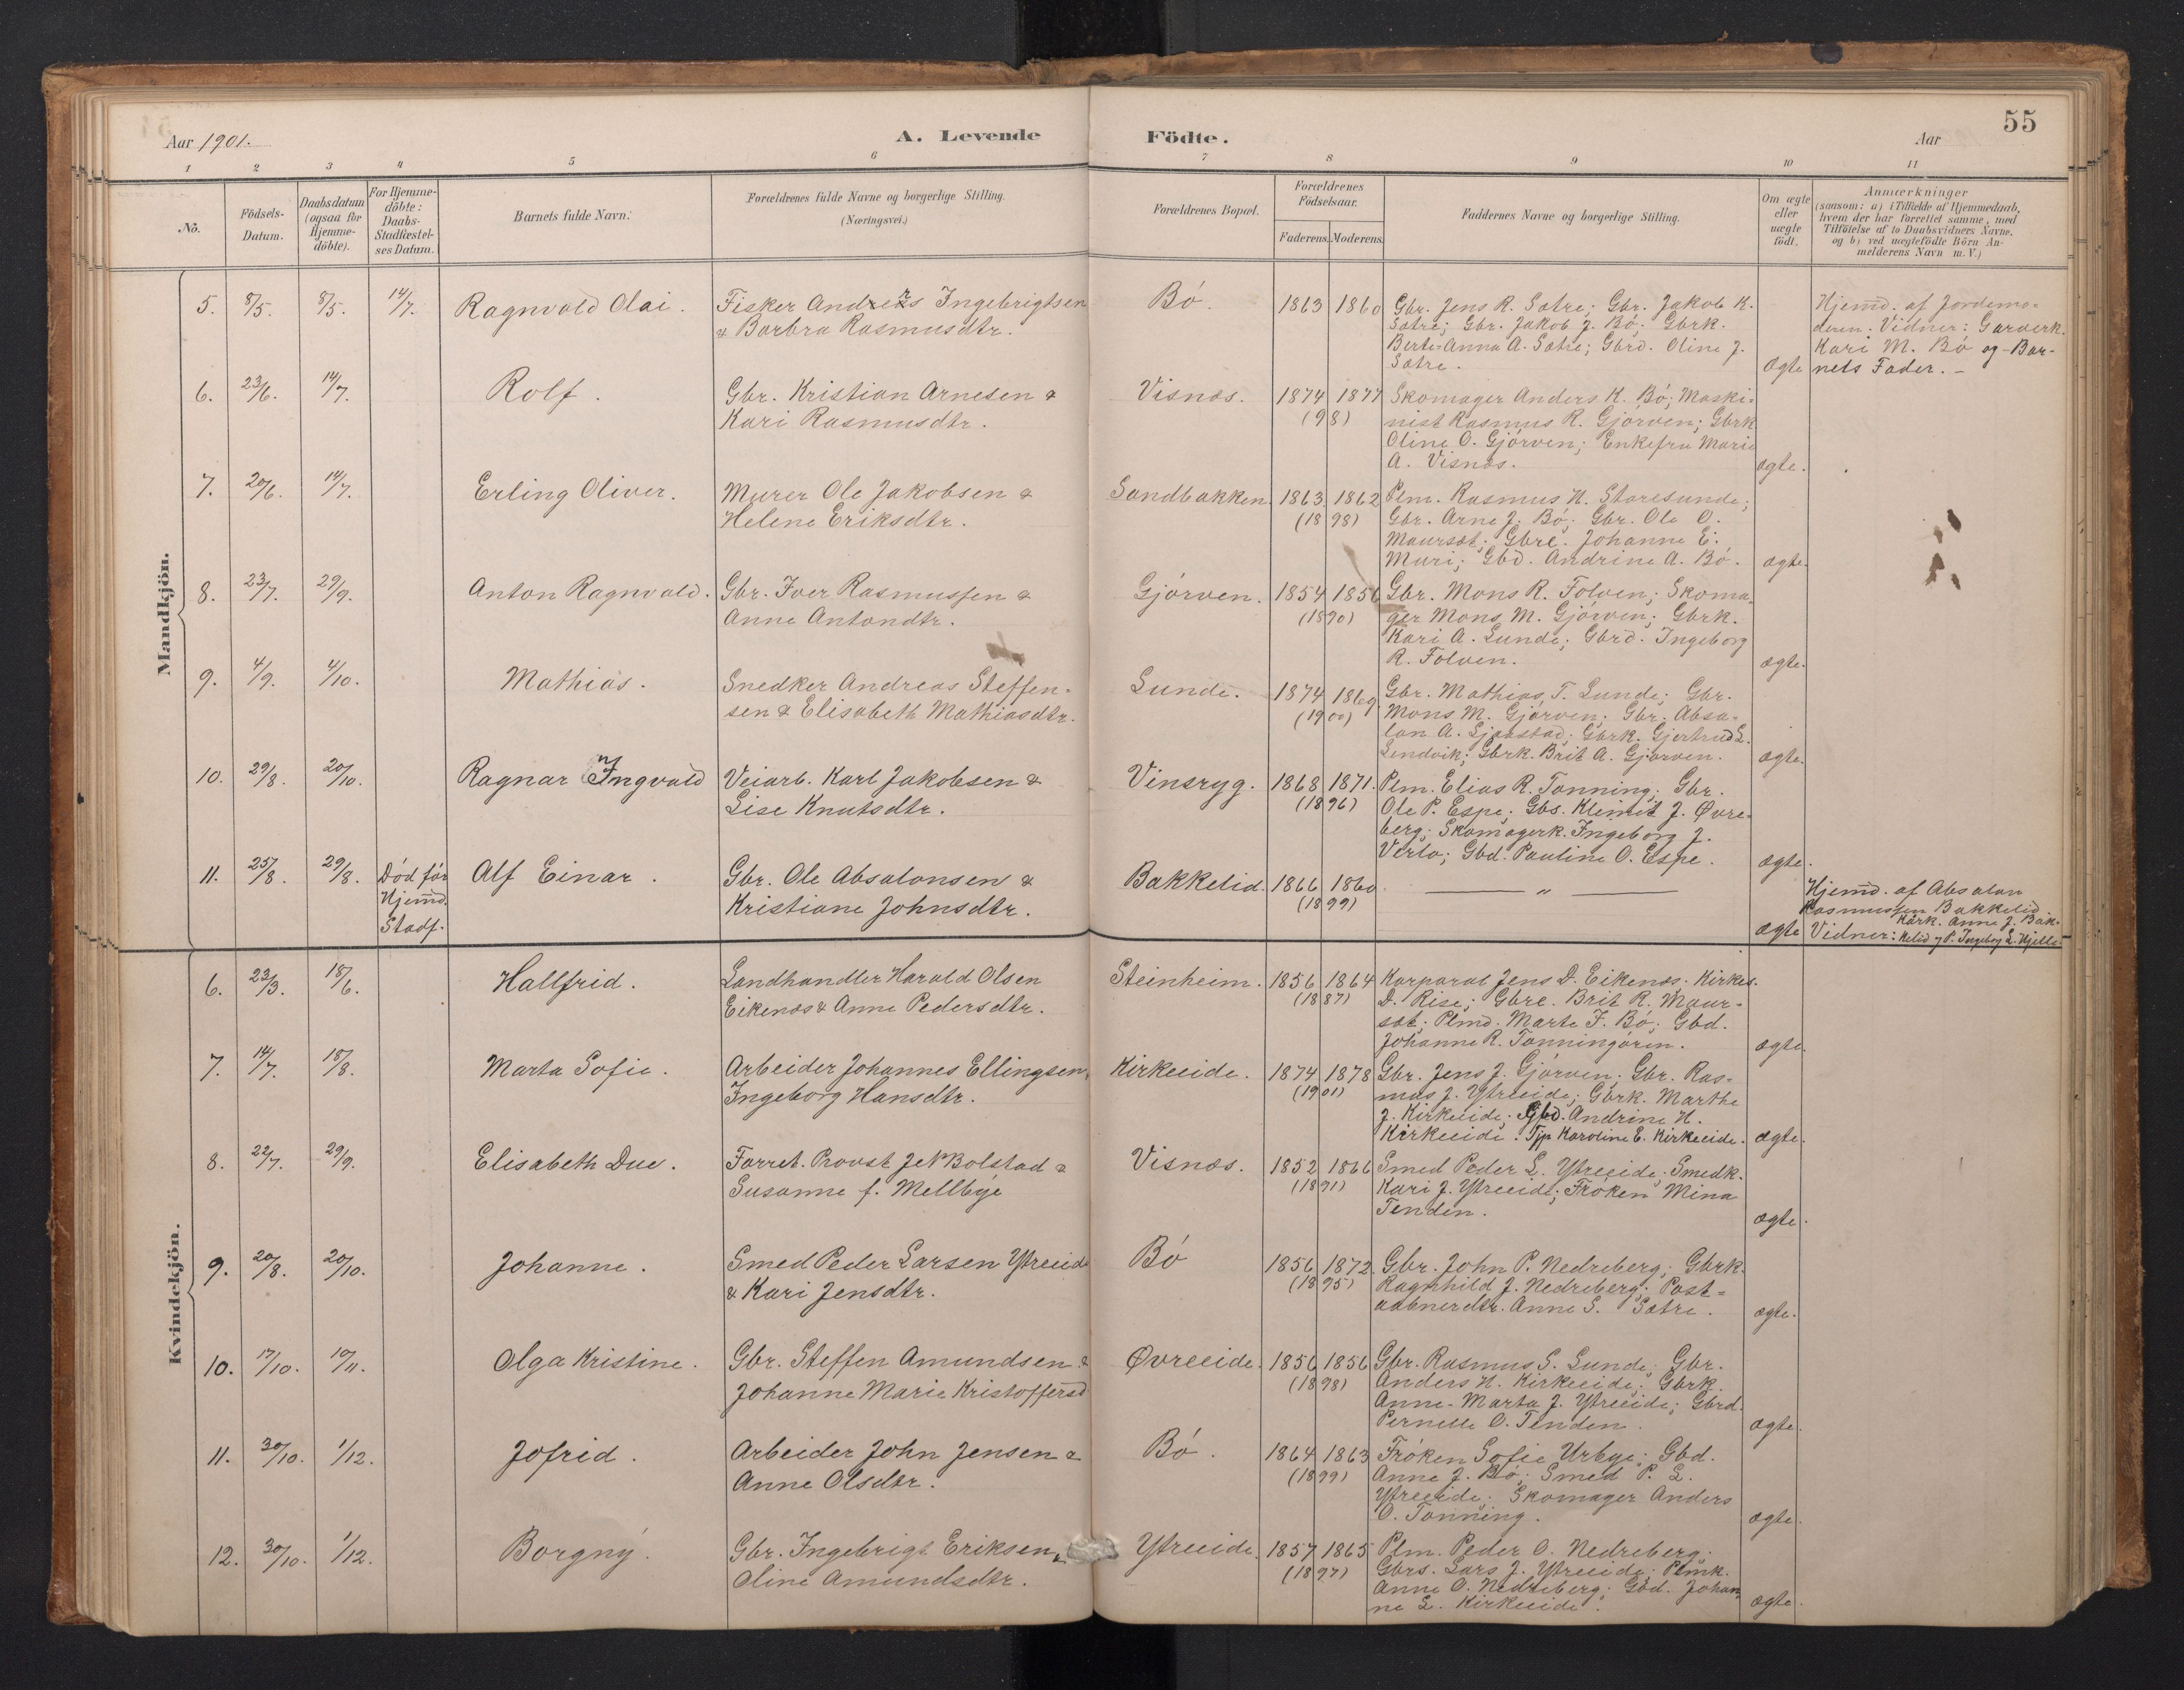 55
Aar 1901.
A. Levende Födte.
Aar
1 2 3 4 5 6 7 8 9 10 11
No.
Födsels-Datum.
Daabsdatum (ogsaa for Hjemme-döbte).
For Hjemme-döbte: Daabs-Stadfæstel-ses Datum.
Barnets fulde Navn.
Forældrenes fulde Navne og borgerlige Stilling.
(Næringsvei.)
Forældrenes Bopæl.
Forældrenes Födselsaar.
Faderens. Moderens.
Faddernes Navne og borgerlige Stilling.
Om ægte eller uægte födt.
Anmærkninger
(saasom: a) i Tilfælde af Hjemmedaab,
hvem der har forrettet samme, med
Tilföielse af to Daabsvidners Navne,
og b) ved uægtefödte Börn An-
melderens Navn m. V.)
Mandkjön.
5. 8/5. 8/5. 14/7. Ragnvald Olai. Fisker Andreas Ingebrigtsen
& Barbra Rasmusdtr.
Bö. 1863 1860
Gbr. Jens R. Sætre; Gbr. Jakob K.
Sætre; Gbr. Jakob J. Bö; Gbrk.
Berte-Anna A. Sætre; Gbrd. Oline J.
Sætre. Ægte
Hjemd. af Jordemo-
deren. Vidner: Garverk.
Kari M. Bö og Bar-
nets Fader. -
6. 23/6. 14/7. Rolf. Gbr. Kristian Arnesen &
Kari Rasmusdtr.
Visnæs. 1874 1877
(98)
Skomager Anders K. Bö; Maski-
nist Rasmus R. Gjörven; Gbrk
Oline O. Gjörven; Enkefru Marie
A. Visnæs. ægte.
7. 20/6. 14/7. Erling Oliver. Murer Ole Jakobsen &
Helene Eriksdtr.
Sandbakken. 1863 1862
(1898)
Plm. Rasmus H. Storesunde;
Gbr. Arne J. Bö; Gbr. Ole O.
Maursæt; Gbre. Johanne E.
Muri; Gbd. Andrine A. Bö. ægte.
8. 23/7. 29/9. Anton Ragnvald. Gbr. Iver Rasmussen &
Anne Antondtr.
Gjörven. 1854 1856
(1890)
Gbr. Mons R. Folven; Skoma-
ger Mons M. Gjörven; Gbrk.
Kari A. Lunde; Gbrd. Ingeborg
R. Folven. ægte.
9. 4/9. 4/10. Mathias. Snedker Andreas Steffen-
sen & Elisabeth Mathiasdtr.
Lunde. 1874 1869
(1900)
Gbr. Mathias T. Lunde; Gbr.
Mons M. Gjörven; Gbr. Absa-
lon A. Sjaastad; Gbrk. Gjertrud L.
Gbrk. Brit A. Gjörven. ægte.
10. 29/8. 20/10. Ragnar Ingvald Veiarb. Karl Jakobsen &
Lise Knutsdtr.
Vinsryg. 1868 1871.
(1896)
Plm. Elias R. Tonning; Gbr.
Ole P. Espe; Gbs. Klemet J. Øvre-
berg; Skomagerk. Ingeborg J.
Verlo; Gbd. Pauline O. Espe. ægte.
11. 25/8. 29/8. Död för
Hjemd.
Stadf.
Alf Einar. Gbr. Ole Absalonsen &
Kristiane Johnsdtr.
Bakkelid. 1866 1860
(1899)
— " —
ægte
Hjemd. af Absalon
Rasmussen Bakkelid
Vidner: Kårk. Anne J. Bak-
kelid og P. Ingeborg L. Hjelle.
Kvindekjön.
6. 23/3. 18/6. Hallfrid. Landhandler Harald Olsen
Eikenæs & Anne Pedersdtr.
Steinheim. 1856 1864
(1887)
Korporal Jens D. Eikenæs; Kirkes.
D. Rise; Gbre. Brit R. Maur-
sæt; Plmd. Marte F. Bö; Gbd.
Johanne R. Tonningören. ægte.
7. 14/7. 18/8. Marta Sofie. Arbeider Johannes Ellingsen,
Ingeborg Hansdtr.
Kirkeeide. 1874 1878
(1901)
Gbr. Jens J. Gjörven; Gbr. Ras-
mus J. Ytreeide; Gbrk. Marthe
J. Kirkeeide; Gbd. Andrine H.
Kirkeeide. Tjp Karoline E. Kirkeeide. ægte.
8. 22/7. 29/9. Elisabeth Due. Forret. Provst Bolstad &
Susanne f. Mellbye
Visnæs. 1852 1866
(1891)
Smed Peder L. Ytreeide; Smedk.
Kari J. Ytreeide; Fröken Mina
Tenden. ægte.
9. 20/8. 20/10. Johanne. Smed Peder Larsen Ytreeide
& Kari Jensdtr.
Bö 1856 1872.
(1895)
Gbr. John P. Nedreberg; Gbrk.
Ragnhild J. Nedreberg; Post-
aabnerdtr. Anne S. Sætre. ægte.
10. 17/10. 10/11. Olga Kristine. Gbr. Steffen Amundsen &
Johanne Marie Kristoffersd
Øvreeide. 1856 1856
(1898)
Gbr. Rasmus S. Lunde; Gbr.
Anders H. Kirkeeide; Gbrk.
Anne-Marta J. Ytreeide; Gbrd.
Pernelle O. Tenden. ægte.
11. 30/10. 1/12. Jofrid. Arbeider John Jensen &
Anne Olsdtr.
Bö. 1864 1863
(1899)
Fröken Sofie Urbye; Gbd.
Anne J. Bö; Smed P. L.
Ytreeide; Skomager Anders
O. Tonning. ægte.
12. 30/10. 1/12. Borgny. Gbr. Ingebrigt Eriksen &
Oline Amundsdtr.
Ytreeide. 1857 1865
(1897)
Plm. Peder O. Nedreberg.
Gbrs. Lars J. Ytreeide; Plmk.
Anne O. Nedreberg; Gbd. Johan-
ne L. Kirkeeide. ægte.